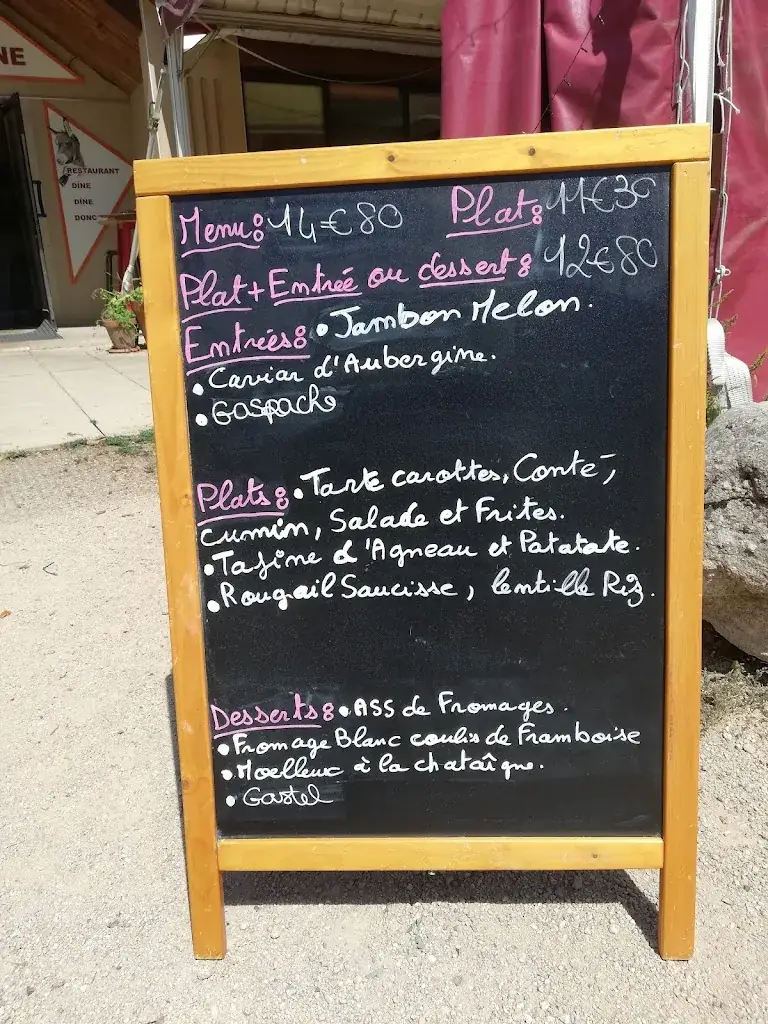 NE
RESTAURANT
DÎNE
DÎNE
DONC
Menu: 14€80 Plat: 11€30
Plat + Entrée ou dessert: 12€80
Entrées: • Jambon Melon.
• Caviar d'Aubergine.
• GASPACho
Plats: • Tarte carottes, Conté,
Cumin, Salade et Frites.
• Tajine d'Agneau et Patatate.
• Rougail Saucisse, lentille Riz.
Desserts: • ASS de Fromages.
• Fromage Blanc coulis de Framboise
• Moelleux à la chataîgne.
• Gastel